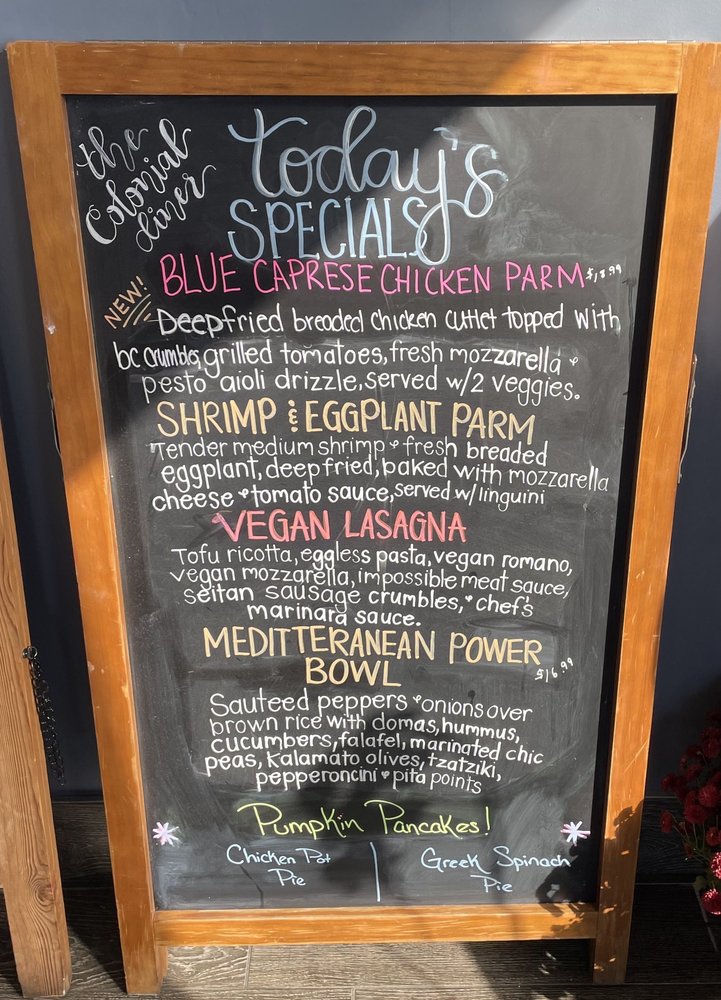 the
Colonial
diner
today's
SPECIALS
BLUE CAPRESE CHICKEN PARM $18.99
NEW!
Deepfried breaded chicken cutlet topped with
bc crumbles, grilled tomatoes, fresh mozzarella &
pesto aioli drizzle, served w/2 veggies.
SHRIMP & EGGPLANT PARM
Tender medium shrimp & fresh breaded
eggplant, deep fried, baked with mozzarella
cheese & tomato sauce, served w/ linguini
VEGAN LASAGNA
Tofu ricotta, eggless pasta, vegan romano,
vegan mozzarella, impossible meat sauce,
seitan sausage crumbles, & chef's
marinara sauce.
MEDITTERANEAN POWER
BOWL $16.99
Sauteed peppers & onions over
brown rice with domas, hummus,
cucumbers, falafel, marinated chic
peas, kalamato olives, tzatziki,
pepperoncini & pita points
Pumpkin Pancakes!
Chicken Pot
Pie
Greek Spinach
Pie